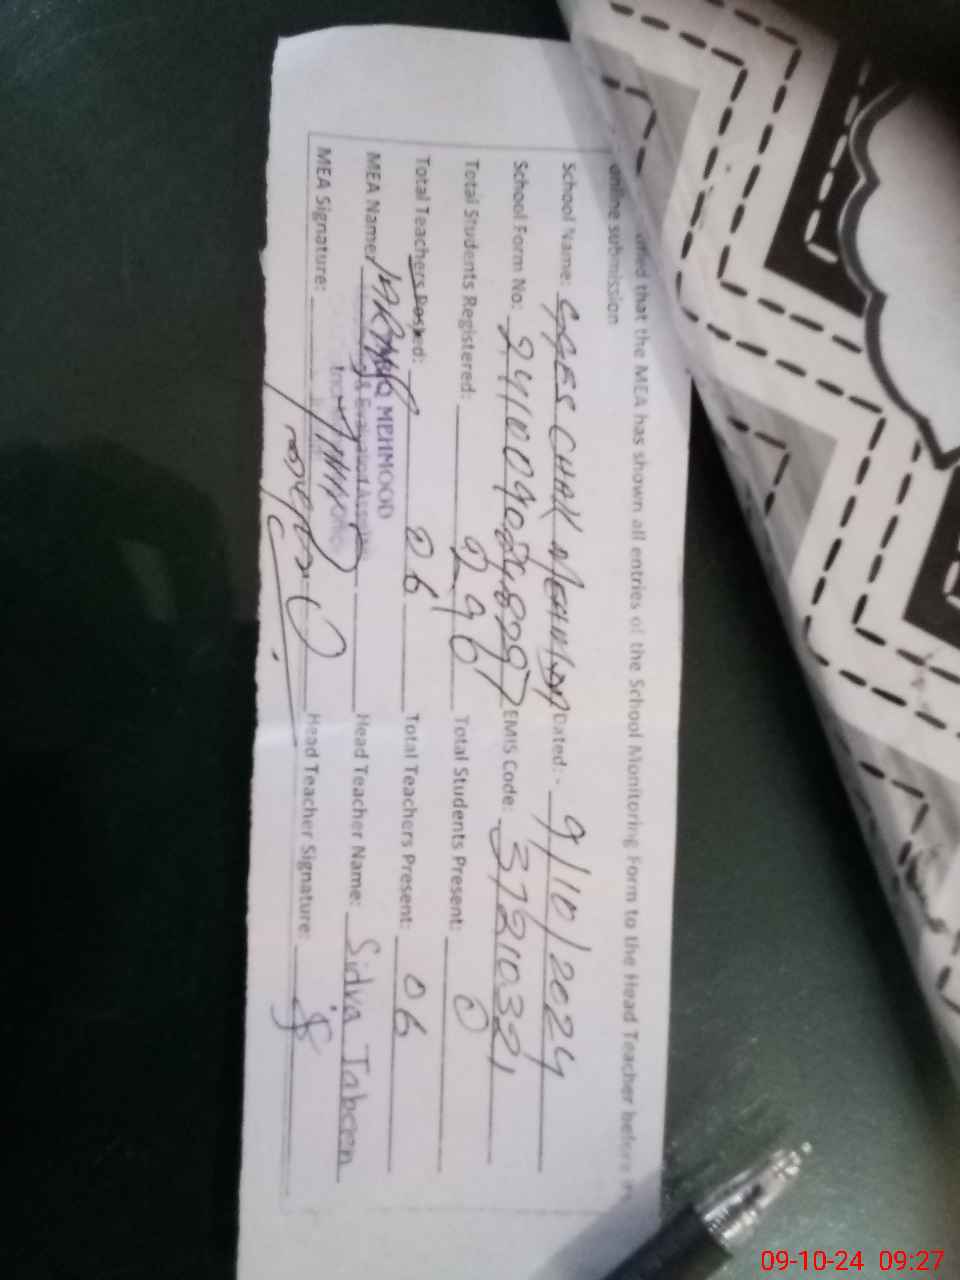 that the MEA has shown all entries of the School Monitoring Form to the Head Teacher before
online submission
School Name: GGES CHAK Dated:- 9/10/2024
School Form No: EMIS Code: 37210321
Total Students Registered: 296 Total Students Present: 0
Total Teachers Posted: 06 Total Teachers Present: 06
MEA Name: MEHMOOD Head Teacher Name: Sidra Jabeen
MEA Signature: Head Teacher Signature:
09-10-24 09:27